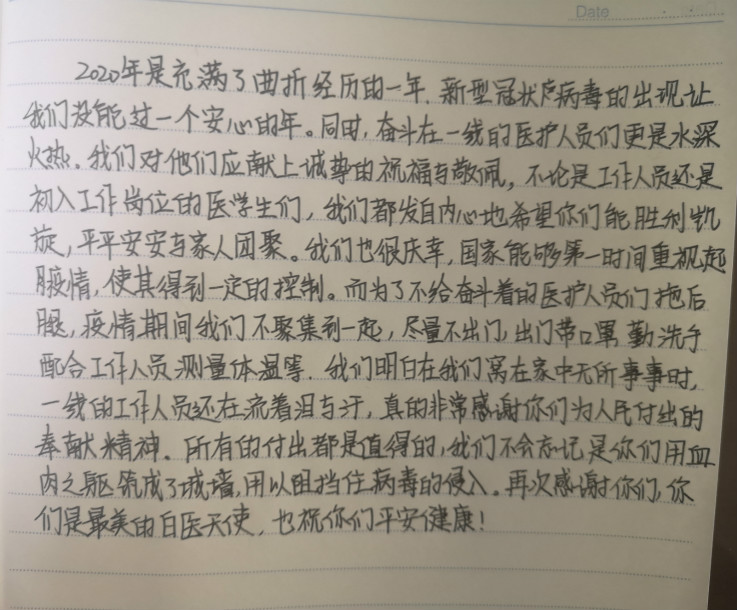 Date
2020年是充满了曲折经历的一年.新型冠状病毒的出现让
我们没能过一个安心的年。同时,奋斗在一线的医护人员们更是水深
火热.我们对他们应献上诚挚的祝福与敬佩,不论是工作人员还是
初入工作岗位的医学生们,我们都发自内心地希望你们能胜利凯
旋,平平安安与家人团聚。我们也很庆幸,国家能够第一时间重视起
疫情,使其得到一定的控制。而为了不给奋斗着的医护人员们拖后
腿,疫情期间我们不聚集到一起,尽量不出门,出门带口罩 勤洗手
配合工作人员测量体温等.我们明白在我们窝在家中无所事事时,
一线的工作人员还在流着泪与汗,真的非常感谢你们为人民付出的
奉献精神.所有的付出都是值得的,我们不会忘记是你们用血
肉之躯筑成了城墙,用以阻挡住病毒的侵入。再次感谢你们,你
们是最美的白医天使,也祝你们平安健康!